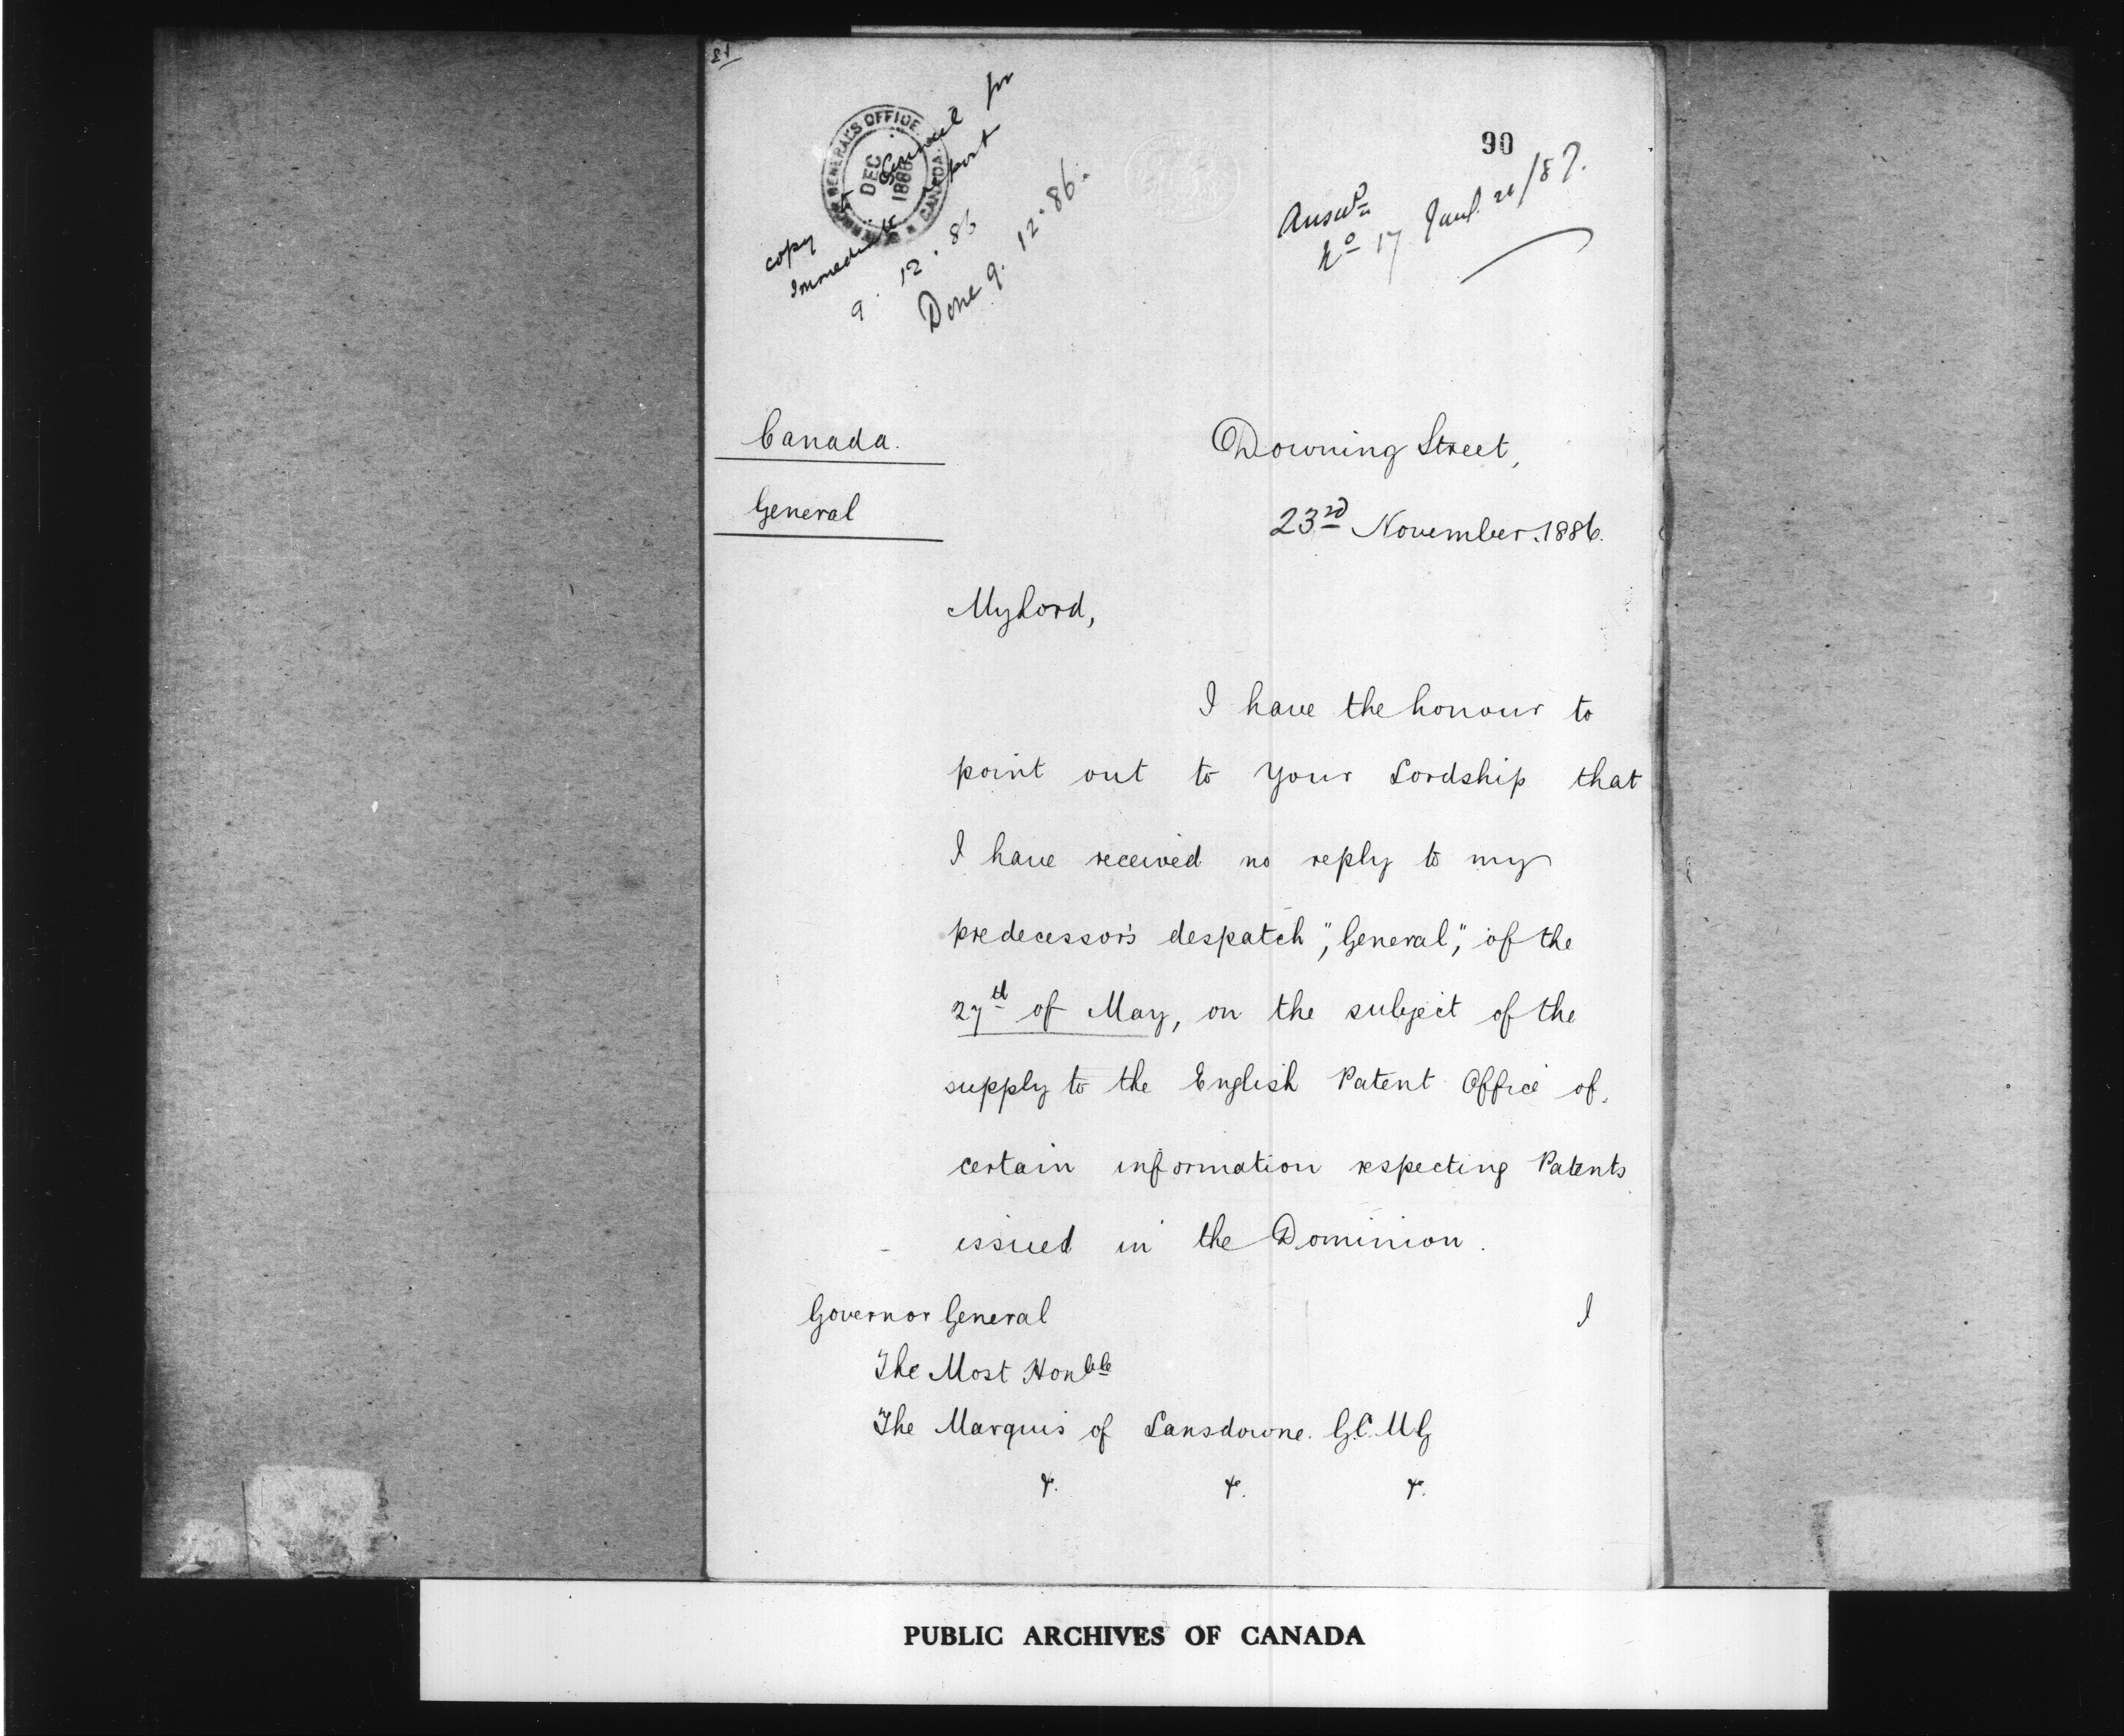 copy to Council for
Immediate report
9. 12. 86
Done 9. 12. 86.
GOVERNOR GENERAL'S OFFICE
CANADA.
DEC
1886
90
Answd
No 17 Jany. 21/87.
Canada.
General
Downing Street,
23rd November. 1886.
My Lord,
I have the honour to
point out to your Lordship that
I have received no reply to my
predecessor's despatch, "General", of the
27th of May, on the subject of the
supply to the English Patent Office of
certain information respecting Patents
issued in the Dominion.
I
Governor General
The Most Honble
The Marquis of Lansdowne. G.C.M.G
&. &. &.
PUBLIC ARCHIVES OF CANADA